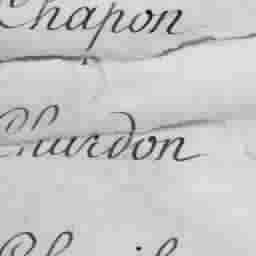 Chapon
Chardon